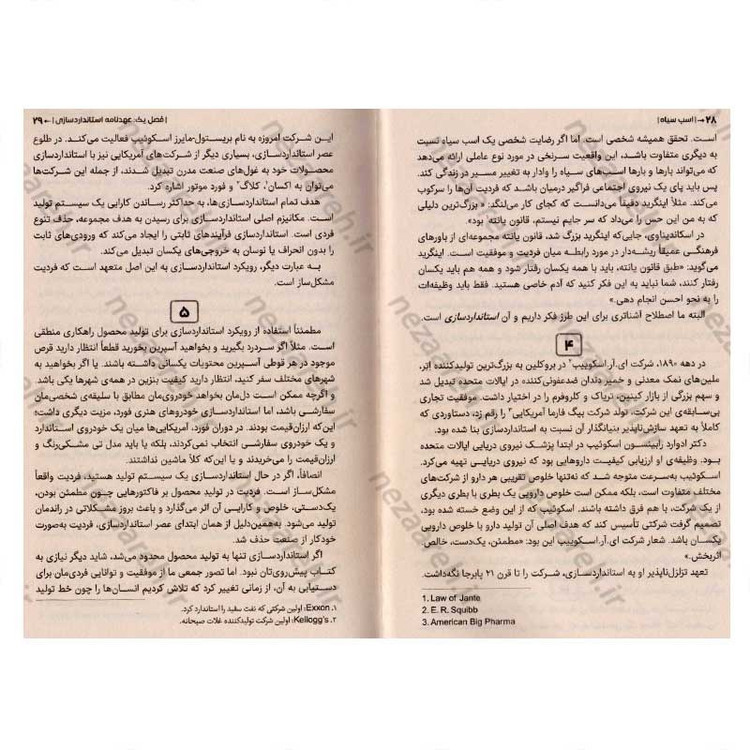 ۲۸ →| اسب سیاه |
است. تحقق همیشه شخصی است. اما اگر رضایت شخصی یک اسب سیاه نسبت
به دیگری متفاوت باشد، این واقعیت سرنخی در مورد نوع عاملی ارائه می‌دهد
که می‌تواند بارها و بارها اسب‌های سیاه را وادار به تغییر مسیر در زندگی کند.
پس باید پای یک نیروی اجتماعی فراگیر درمیان باشد که فردیت آن‌ها را سرکوب
می‌کند. مثلاً اینگرید دقیقاً می‌دانست که کجای کار می‌لنگد: «بزرگ‌ترین دلیلی
که به من این حس را می‌داد که سر جایم نیستم، قانون یانته بود».
در اسکاندیناوی، جایی‌که اینگرید بزرگ شد، قانون یانته مجموعه‌ای از باورهای
فرهنگی عمیقاً ریشه‌دار در مورد رابطه میان فردیت و موفقیت است. اینگرید
می‌گوید: «طبق قانون یانته، باید با همه یکسان رفتار شود و همه هم باید یکسان
رفتار کنند، شما نباید به این فکر کنید که آدم خاصی هستید. فقط باید وظیفه‌ات
را به نحو احسن انجام دهی.»
البته ما اصطلاح آشناتری برای این طرز فکر داریم و آن استانداردسازی است.
۴
در دهه ۱۸۹۰، شرکت ای.آر.اسکوییپ۲ در بروکلین به بزرگ‌ترین تولیدکننده اتر،
ملین‌های نمک معدنی و خمیر دندان ضدعفونی‌کننده در ایالات متحده تبدیل شد
و سهم بزرگی از بازار کینین، تریاک و کلروفرم را در اختیار داشت. موفقیت تجاری
بی‌سابقه‌ی این شرکت، تولد شرکت بیگ فارما آمریکایی۳ را رقم زد، دستاوردی که
کاملاً به تعهد سازش‌ناپذیر بنیانگذار آن نسبت به استانداردسازی بنا شده بود.
دکتر ادوارد رابینسون اسکوئیپ در ابتدا پزشک نیروی دریایی ایالات متحده
بود. وظیفه‌ی او ارزیابی کیفیت داروهایی بود که نیروی دریایی تهیه می‌کرد.
اسکوئیپ به‌سرعت متوجه شد که نه‌تنها خلوص تقریبی هر دارو از شرکت‌های
مختلف متفاوت است، بلکه ممکن است خلوص دارویی یک بطری با بطری دیگری
از یک شرکت، با هم فرق داشته باشند. اسکوئیپ که از این وضع خسته شده بود،
تصمیم گرفت شرکتی تأسیس کند که هدف اصلی آن تولید دارو با خلوص دارویی
یکسان باشد. شعار شرکت ای.آر.اسکوییپ این بود: «مطمئن، یک‌دست، خالص
اثربخش.»
تعهد تزلزل‌ناپذیر او به استانداردسازی، شرکت را تا قرن ۲۱ پابرجا نگه‌داشت.
1. Law of Jante
2. E. R. Squibb
3. American Big Pharma
| فصل یک: عهدنامه استانداردسازی |← ۲۹
این شرکت امروزه به نام بریستول-مایرز اسکوئیپ فعالیت می‌کند. در طلوع
عصر استانداردسازی، بسیاری دیگر از شرکت‌های آمریکایی نیز با استانداردسازی
محصولات خود به غول‌های صنعت مدرن تبدیل شدند، از جمله این شرکت‌ها
می‌توان به اکسان۱، کلاگ۲ و فورد موتور اشاره کرد.
هدف تمام استانداردسازی‌ها، به حداکثر رساندن کارایی یک سیستم تولید
است. مکانیزم اصلی استانداردسازی برای رسیدن به هدف مجموعه، حذف تنوع
فردی است. استانداردسازی فرآیندهای ثابتی را ایجاد می‌کند که ورودی‌های ثابت
را بدون انحراف یا نوسان به خروجی‌های یکسان تبدیل می‌کند.
به عبارت دیگر، رویکرد استانداردسازی به این اصل متعهد است که فردیت
مشکل‌ساز است.
۵
مطمئناً استفاده از رویکرد استانداردسازی برای تولید محصول راهکاری منطقی
است. مثلاً اگر سردرد بگیرید و بخواهید آسپرین بخورید قطعاً انتظار دارید قرص
موجود در هر قوطی آسپرین محتویات یکسانی داشته باشند. یا اگر بخواهید به
شهرهای مختلف سفر کنید، انتظار دارید کیفیت بنزین در همه‌ی شهرها یکی باشد.
و اگرچه ممکن است دل‌مان بخواهد خودروی‌مان مطابق با سلیقه‌ی شخصی‌مان
سفارشی باشد، اما استانداردسازی خودروهای هنری فورد، مزیت دیگری داشت؛
این‌که ارزان‌قیمت بودند. در دوران فورد، آمریکایی‌ها میان یک خودروی استاندارد
و یک خودروی سفارشی انتخاب نمی‌کردند، بلکه یا باید مدل تی مشکی‌رنگ و
ارزان‌قیمت را می‌خریدند و یا این‌که کلاً ماشین نداشتند.
انصافاً، اگر در حال استانداردسازی یک سیستم تولید هستید، فردیت واقعاً
مشکل‌ساز است. فردیت در تولید محصول بر فاکتورهایی چون مطمئن بودن،
یک‌دستی، خلوص و کارایی آن اثر می‌گذارد و باعث بروز مشکلاتی در راندمان
تولید می‌شود. به‌همین‌دلیل از همان ابتدای عصر استانداردسازی، فردیت به‌صورت
خودکار از صنعت حذف شد.
اگر استانداردسازی تنها به تولید محصول محدود می‌شد، شاید دیگر نیازی به
کتاب پیش‌روی‌تان نبود. اما تصور جمعی ما از موفقیت و توانایی فردی‌مان برای
دستیابی به آن، از زمانی تغییر کرد که تلاش کردیم انسان‌ها را چون خط تولید
۱. Exxon: اولین شرکتی که نفت سفید را استاندارد کرد.
۲. Kellogg's: اولین شرکت تولیدکننده غلات صبحانه.
nezaareh.ir